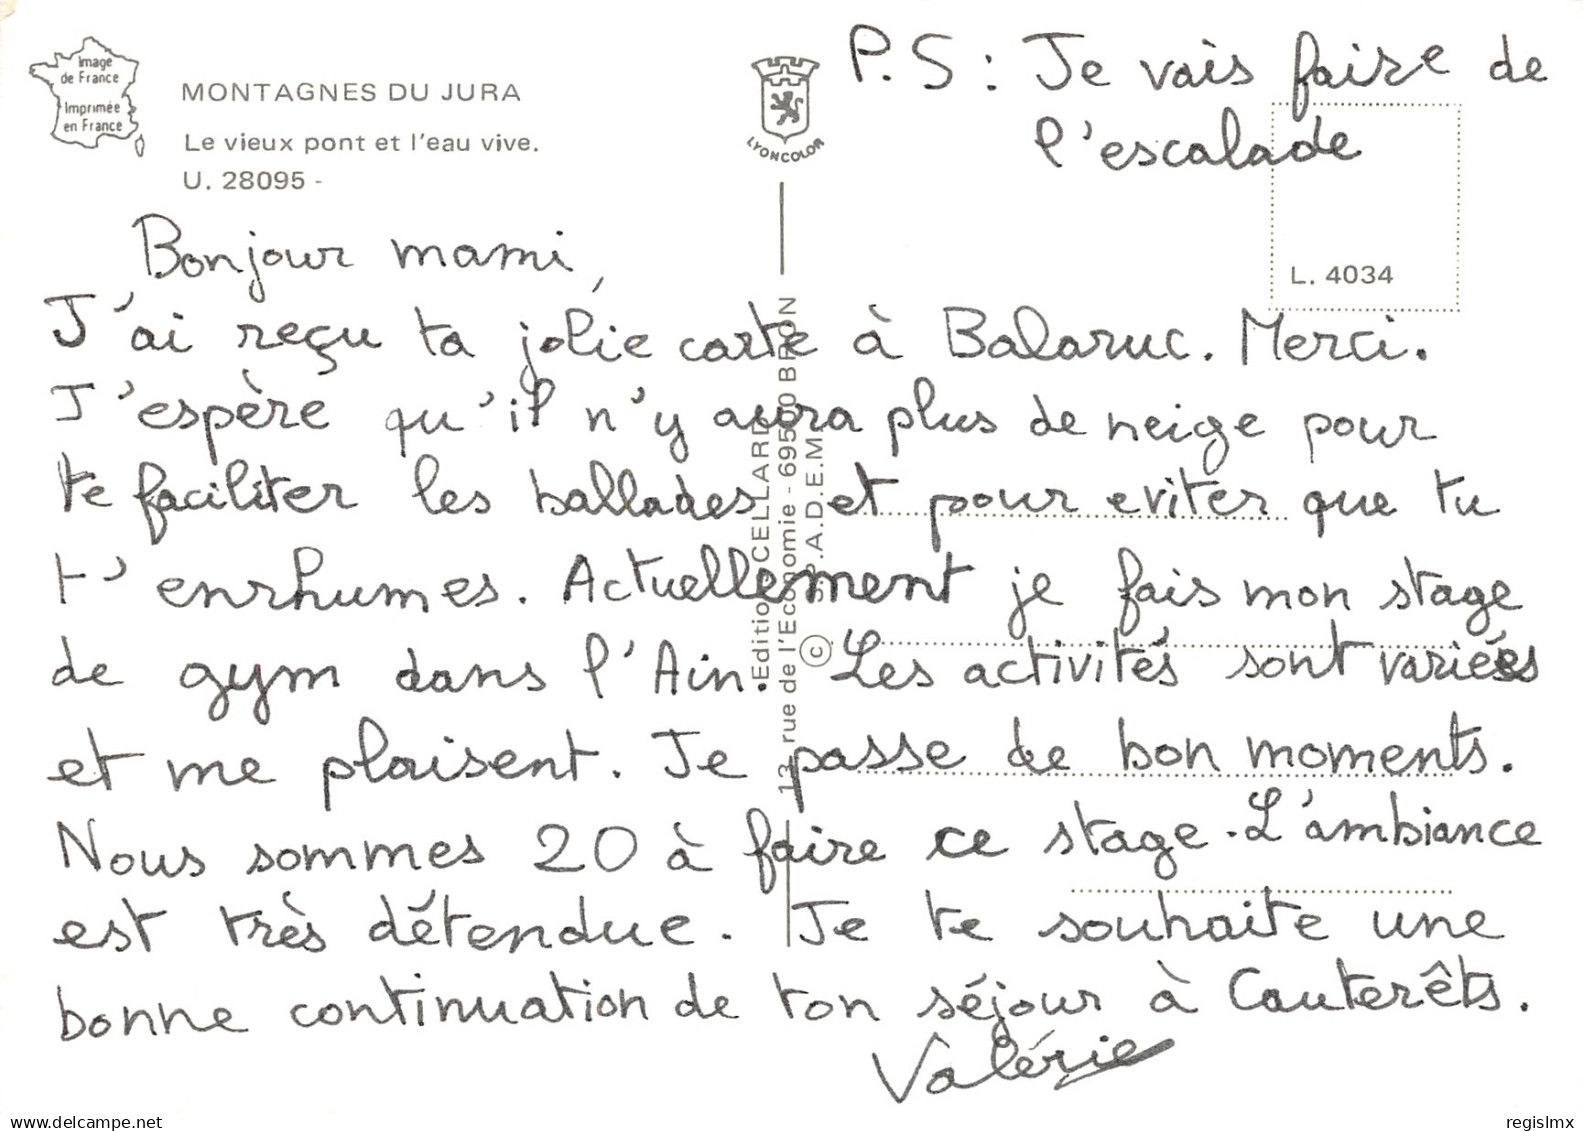 Image
de France
Imprimée
en France
MONTAGNES DU JURA
Le vieux pont et l'eau vive.
U. 28095 -
LYONCOLOR
P.S : Je vais faire de
l'escalade
L. 4034
Bonjour mami,
J'ai reçu ta jolie carte à Balaruc. Merci.
J'espère qu'il n'y aura plus de neige pour
te faciliter les ballades et pour eviter que tu
t'enrhumes. Actuellement je fais mon stage
de gym dans l'Ain. Les activités sont variées
et me plaisent. Je passe de bon moments.
Nous sommes 20 à faire ce stage. L'ambiance
est très détendue. Je te souhaite une
bonne continuation de ton séjour à Cauterêts.
Valérie
Edition CELLARD
13, rue de l'Economie - 69500 BRON
© S.P.A.D.E.M.
delcampe.net
regislmx